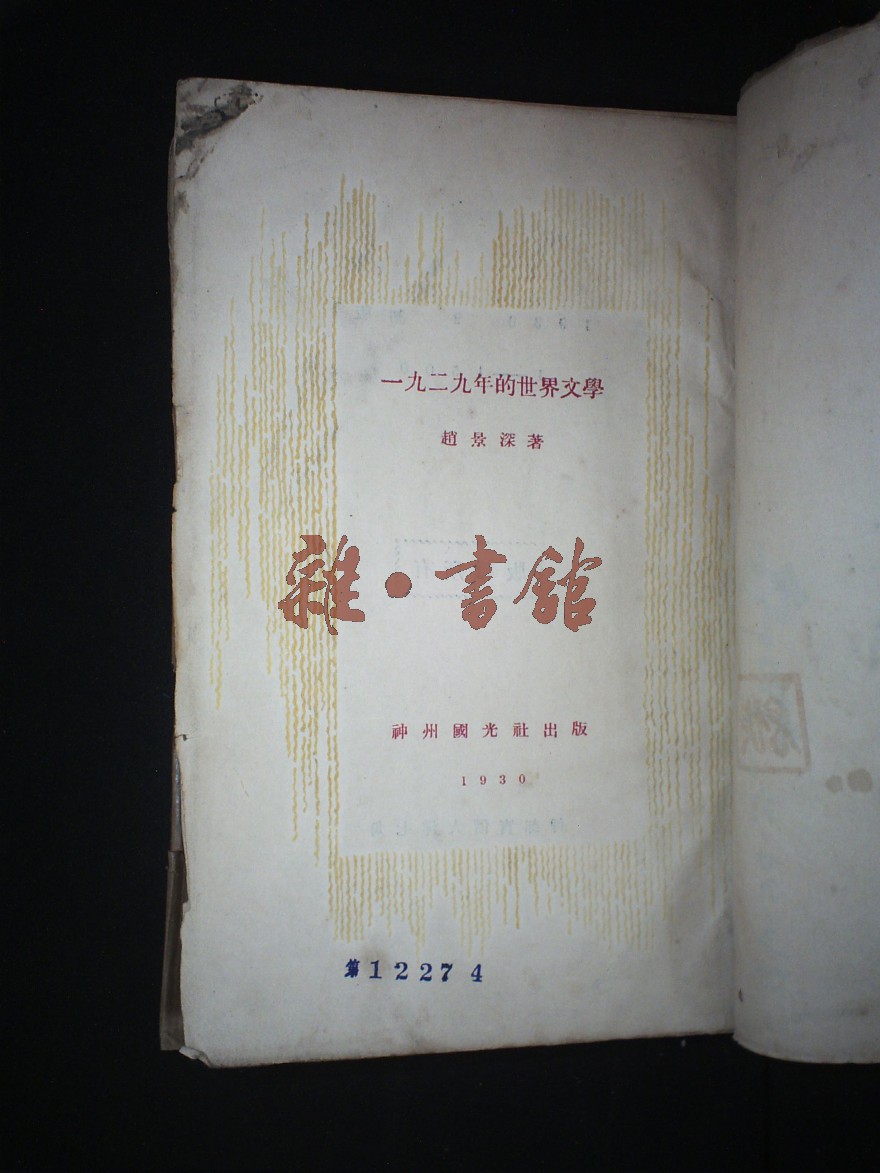 一九二九年的世界文學
趙景深著
雜·書館
神州國光社出版
1930
第12274